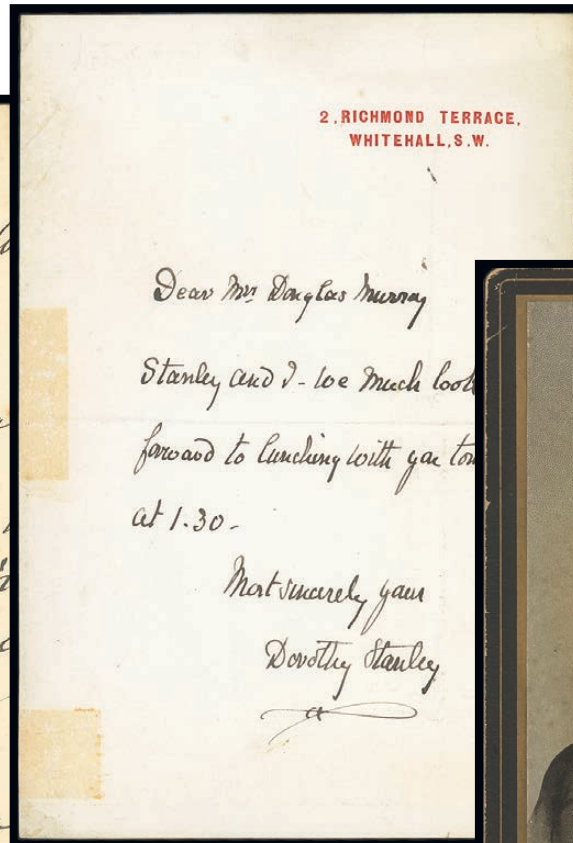 2, RICHMOND TERRACE,
WHITEHALL, S.W.
Dear Mrs Douglas Murray
Stanley and I - we much look
forward to lunching with you
at 1.30 -
Most sincerely yours
Dorothy Stanley